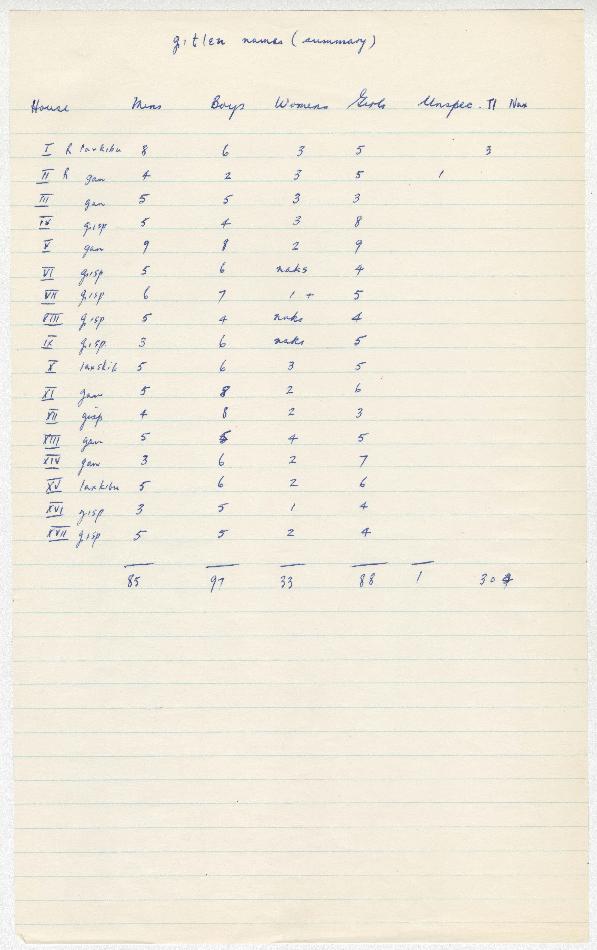 gitlen names (summary)
House Mens Boys Womens Girls Unspec. Tl Nax
I h laxkibu 8 6 3 5 3
II h gan 4 2 3 5 1
III gan 5 5 3 3
IV gisp 5 4 3 8
V gan 9 8 2 9
VI gisp 5 6 naks 4
VII gisp 6 7 1 + 5
VIII gisp 5 4 naks 4
IX gisp. 3 6 naks 5
X laxskib 5 6 3 5
XI gan 5 8 2 6
XII gisp 4 8 2 3
XIII gan 5 5 4 5
XIV gan 3 6 2 7
XV laxkibu 5 6 2 6
XVI gisp 3 5 1 4
XVII gisp 5 5 2 4
85 97 33 88 1 304